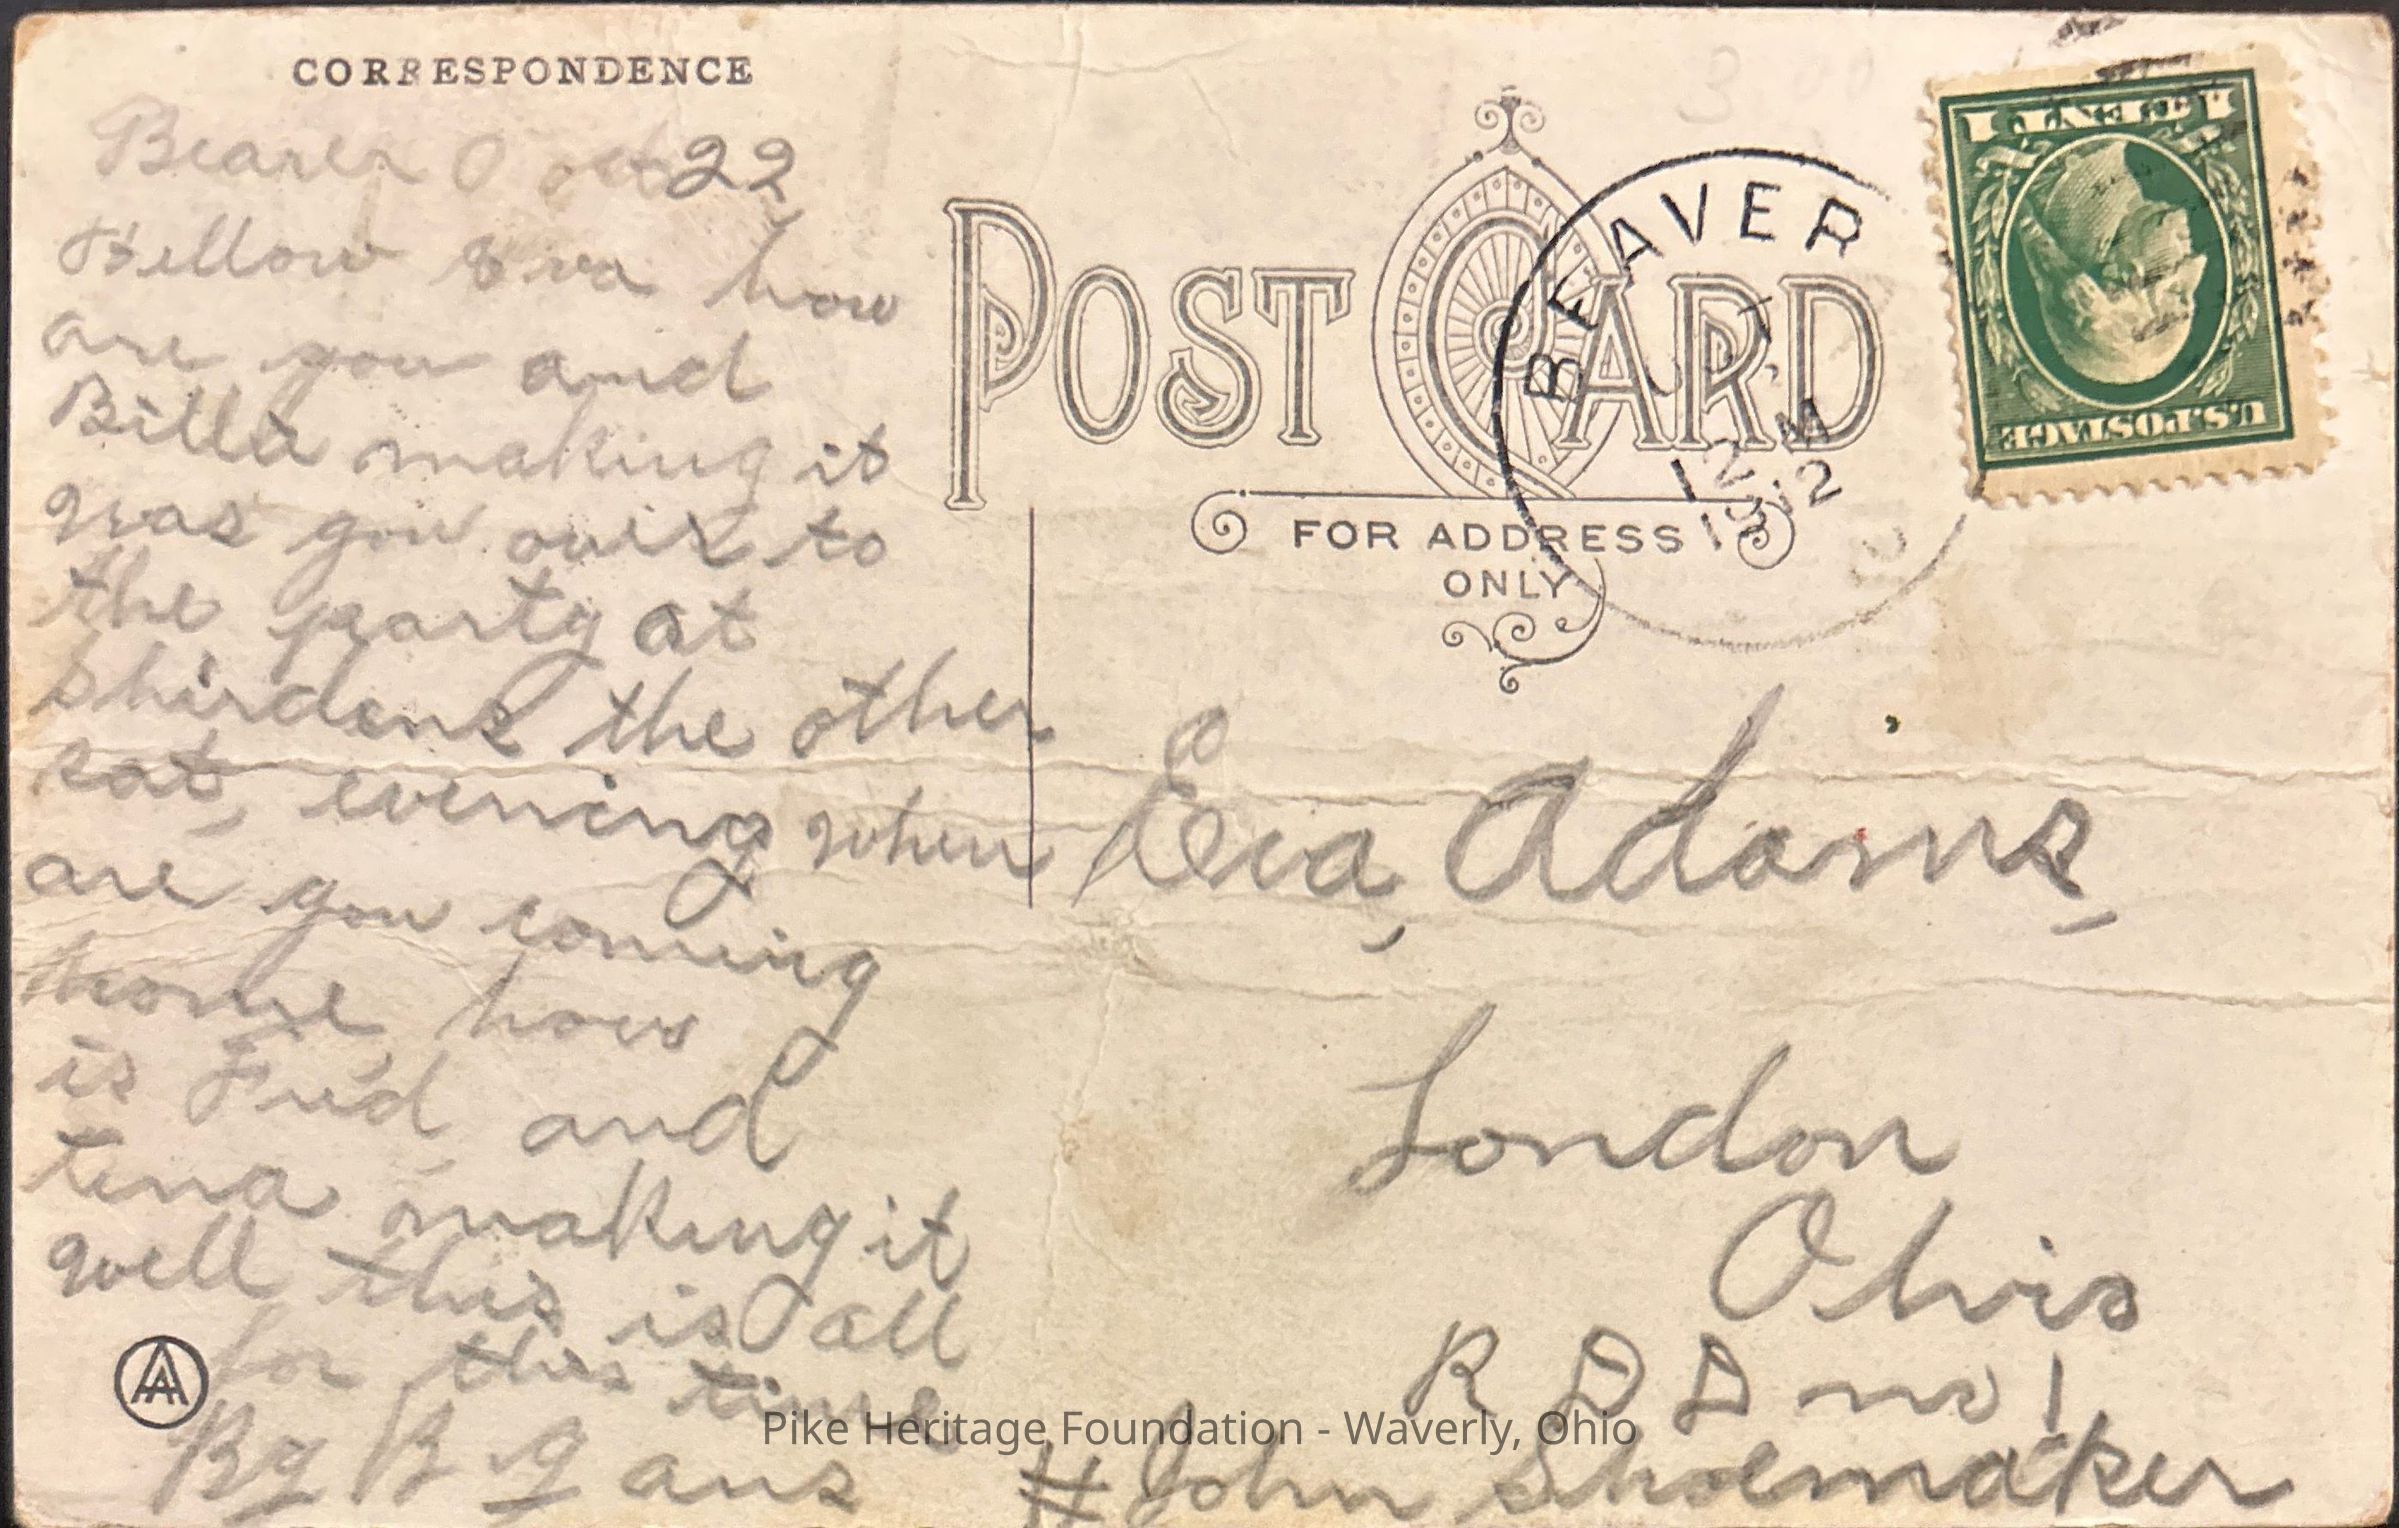 CORRESPONDENCE
Beaver O oct 22
Hellow Eva how
are you and
Billa making it
was you over to
the party at
Shirdens the other
sat, evening when
are you coming
home, how
is Fred, and
tena making it
well this is all
for this time
By B. g ans
POST CARD
FOR ADDRESS
ONLY
BEAVER
12 M
U.S. POSTAGE
1 CENT 1
Eva, Adams,
London
Ohio
R D D no 1
# John Shoemaker
AA
Pike Heritage Foundation - Waverly, Ohio